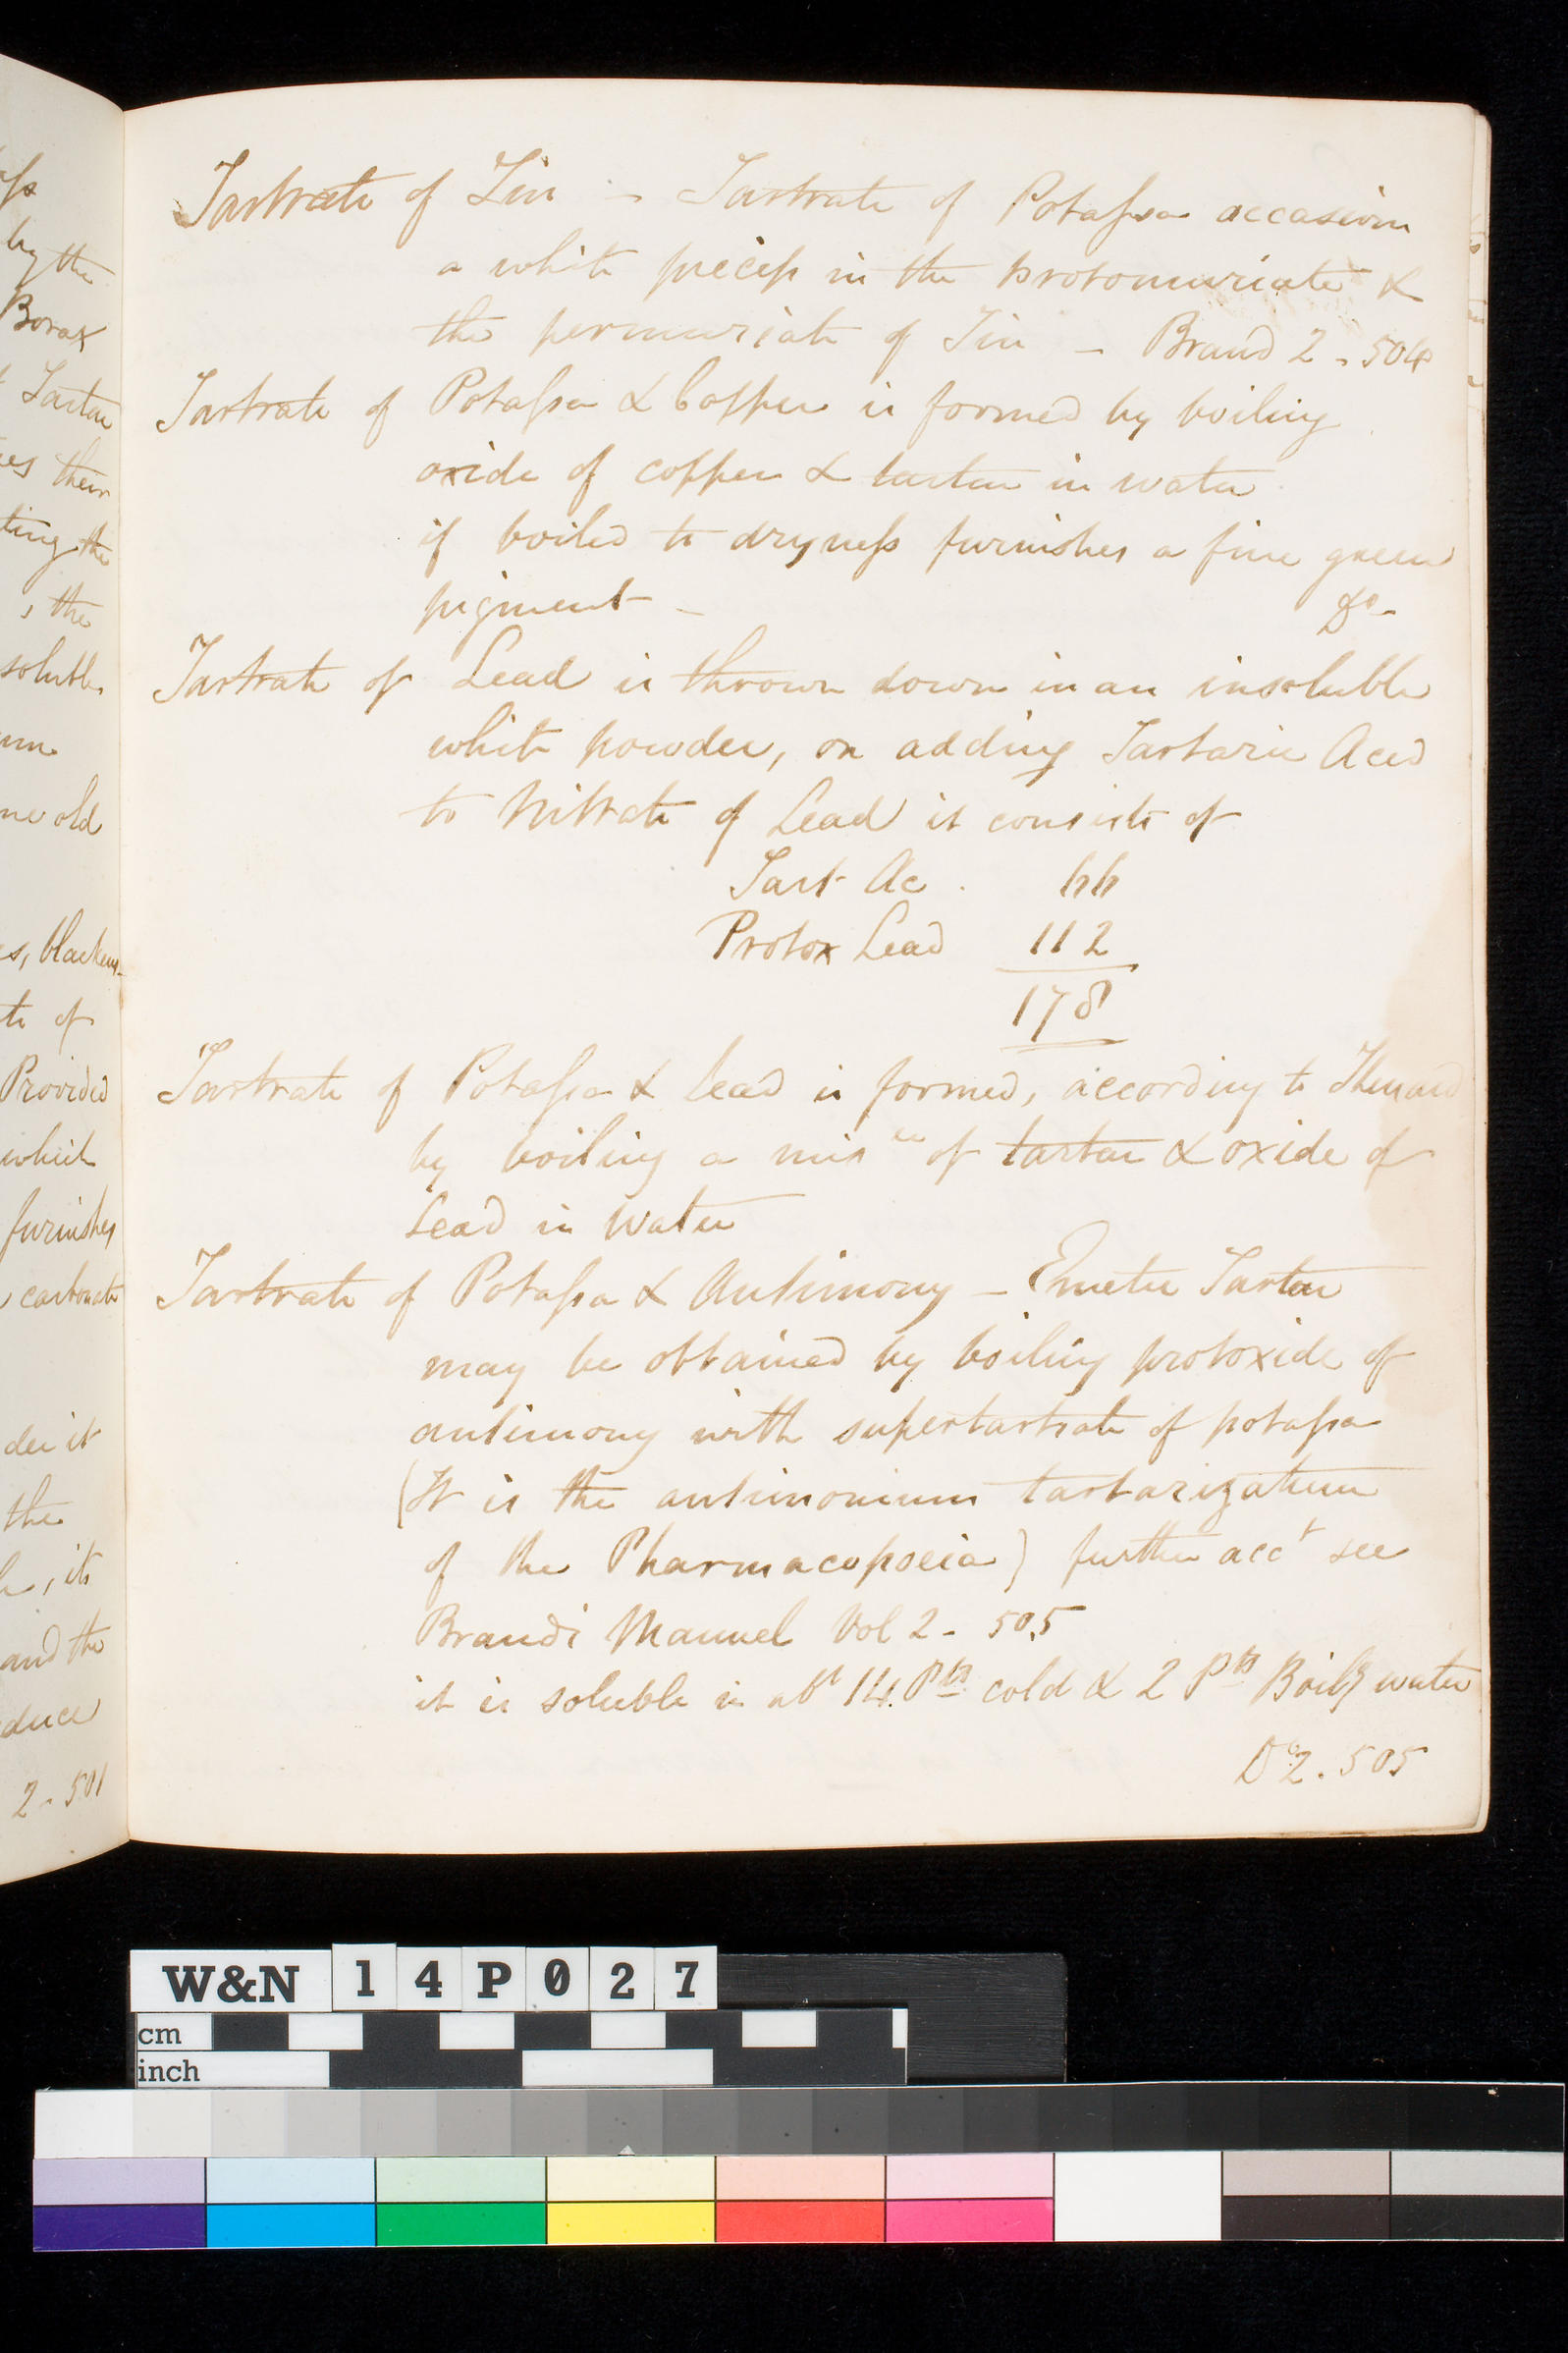 Tartrate of Tin - Tartrate of Potassa occasions
a white precip in the protomuriate &
the permuriate of Tin - Brand 2 - 504
Tartrate of Potassa & Copper is formed by boiling
oxide of copper & tartar in water
if boiled to dryness furnishes a fine green
pigment - Do -
Tartrate of Lead is thrown down in an insoluble
white powder, on adding Tartaric Acid
to Nitrate of Lead it consists of
Tart Ac . 66
Protox Lead 112
178
Tartrate of Potassa & Lead is formed, according to Thenard
by boiling a mix re of tartar & oxide of
Lead in Water
Tartrate of Potassa & Antimony - Emetic Tartar
may be obtained by boiling protoxide of
antimony with supertartrate of potassa
(It is the antimonium tartarizatum
of the Pharmacopoeia) further acct see
Brands Manuel Vol 2 - 505
it is soluble in abt 14 Pts cold & 2 Pts Boilg water
Do 2. 505
by the
Borax
Tartar
their
ting the
, the
soluble
old
, blackens
te of
Provided
which
furnishes
carbonate
der it
the
, its
and the
duce
2 - 501
W&N 14P027
cm
inch